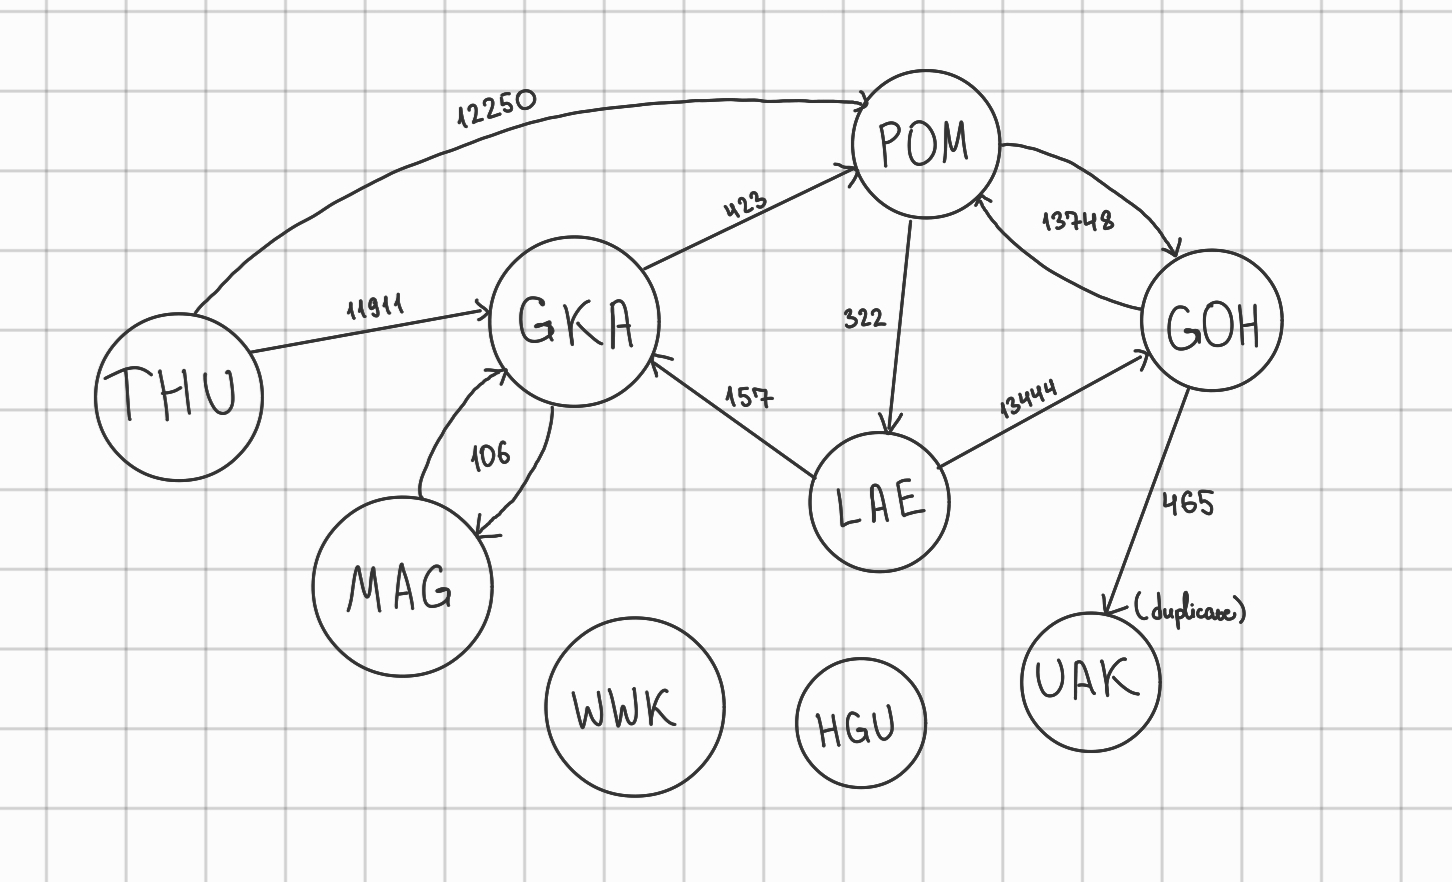 12250
POM
423
13748
11911
GKA
322
GOH
THU
157
13444
106
LAE
465
MAG
(duplicate)
UAK
WWK
HGU